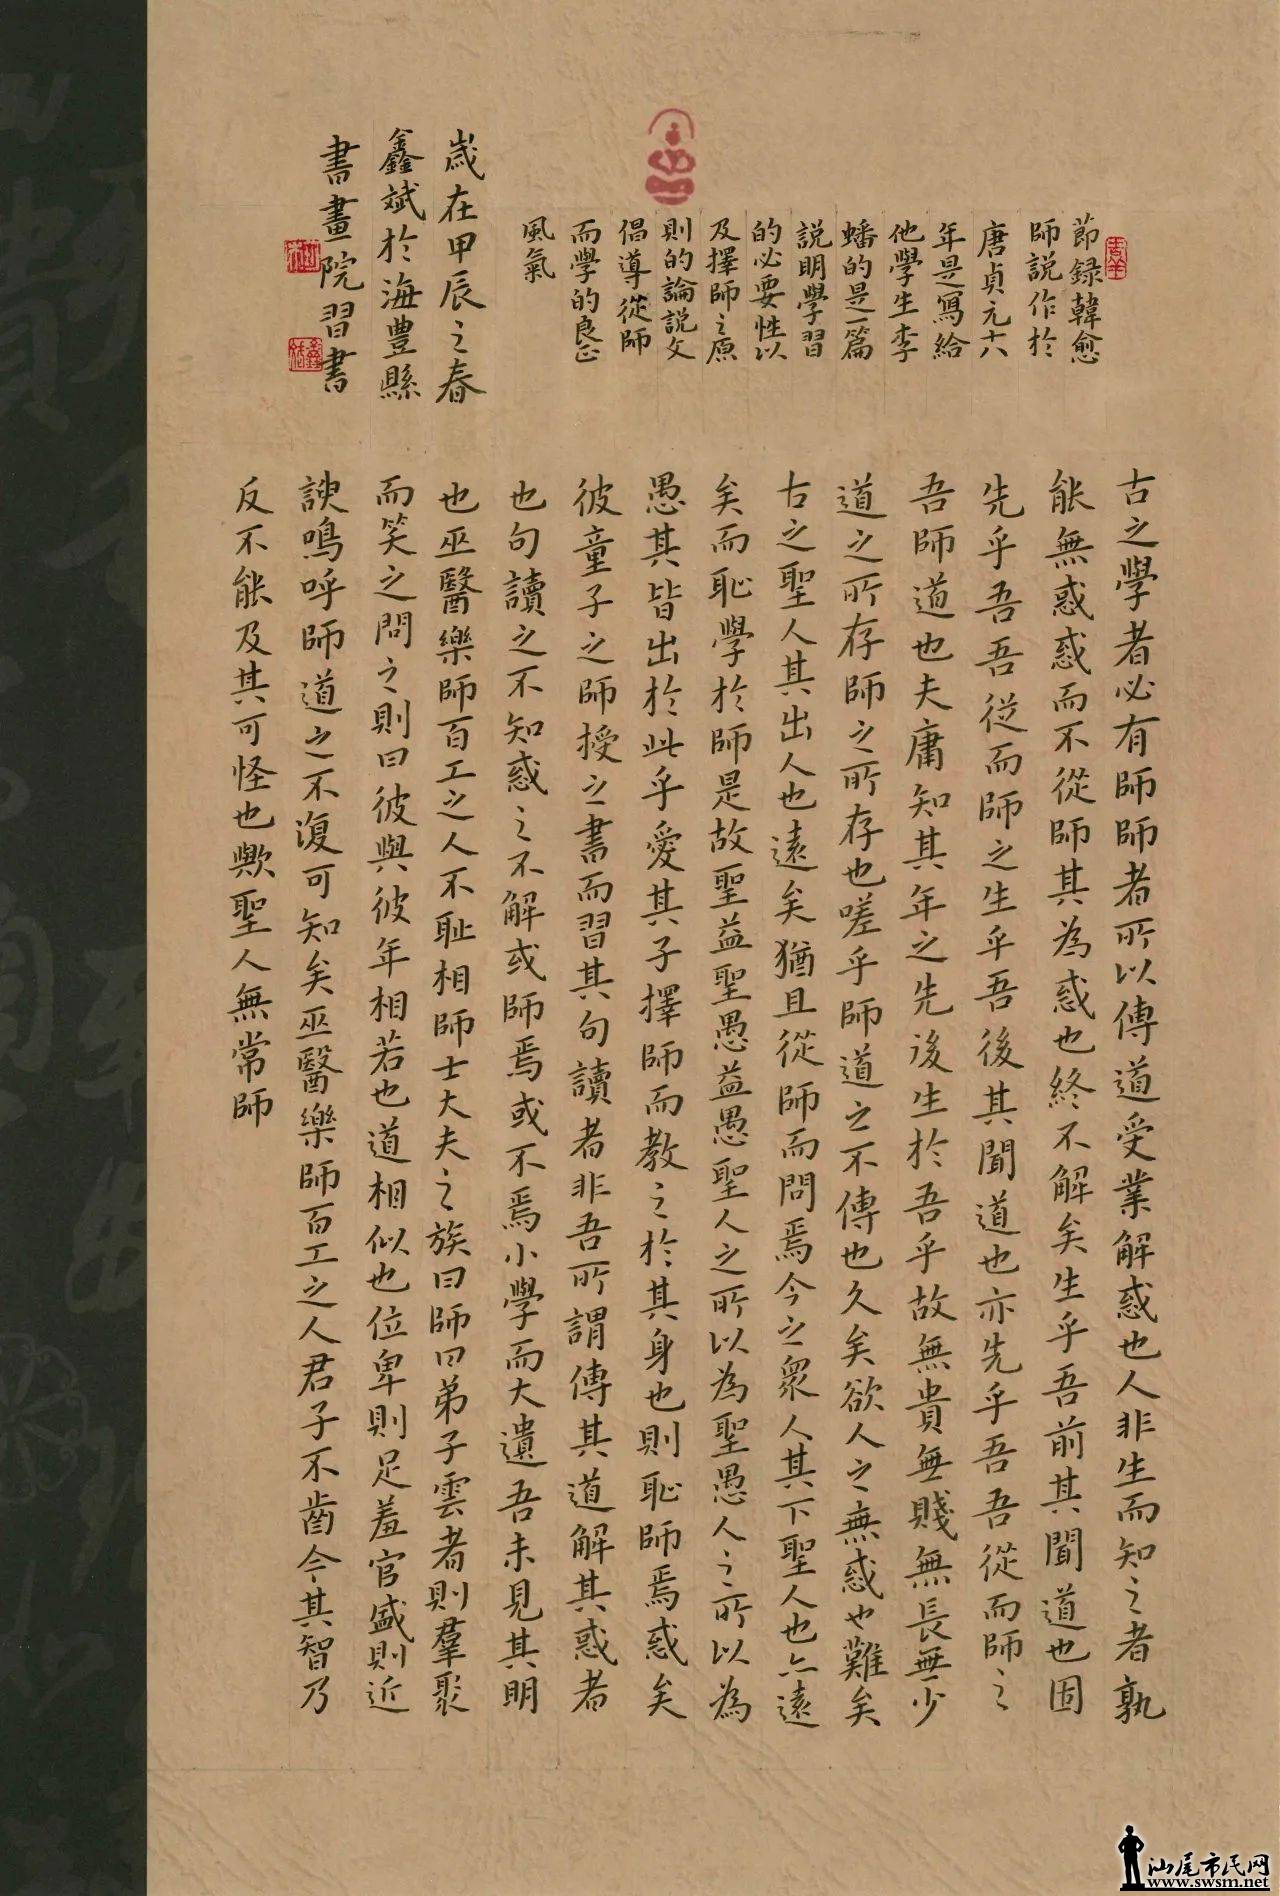 節録韓愈
師説作於
唐貞元十八
年是寫給
他學生李
蟠的是一篇
説明學習
的必要性以
及擇師之原
則的論説文
倡導從師
而學的良正
風氣
歲在甲辰之春
鑫斌於海豐縣
書畫院習書
古之學者必有師師者所以傳道受業解惑也人非生而知之者孰
能無惑惑而不從師其為惑也終不解矣生乎吾前其聞道也固
先乎吾吾從而師之生乎吾後其聞道也亦先乎吾吾從而師之
吾師道也夫庸知其年之先後生於吾乎故無貴無賤無長無少
道之所存師之所存也嗟乎師道之不傳也久矣欲人之無惑也難矣
古之聖人其出人也遠矣猶且從師而問焉今之衆人其下聖人也亦遠
矣而恥學於師是故聖益聖愚益愚聖人之所以為聖愚人之所以為
愚其皆出於此乎愛其子擇師而教之於其身也則恥師焉惑矣
彼童子之師授之書而習其句讀者非吾所謂傳其道解其惑者
也句讀之不知惑之不解或師焉或不焉小學而大遺吾未見其明
也巫醫樂師百工之人不耻相師士大夫之族曰師曰弟子雲者則羣聚
而笑之問之則曰彼與彼年相若也道相似也位卑則足羞官盛則近
諛嗚呼師道之不復可知矣巫醫樂師百工之人君子不齒今其智乃
反不能及其可怪也歟聖人無常師
汕尾市民网
www.swsm.net